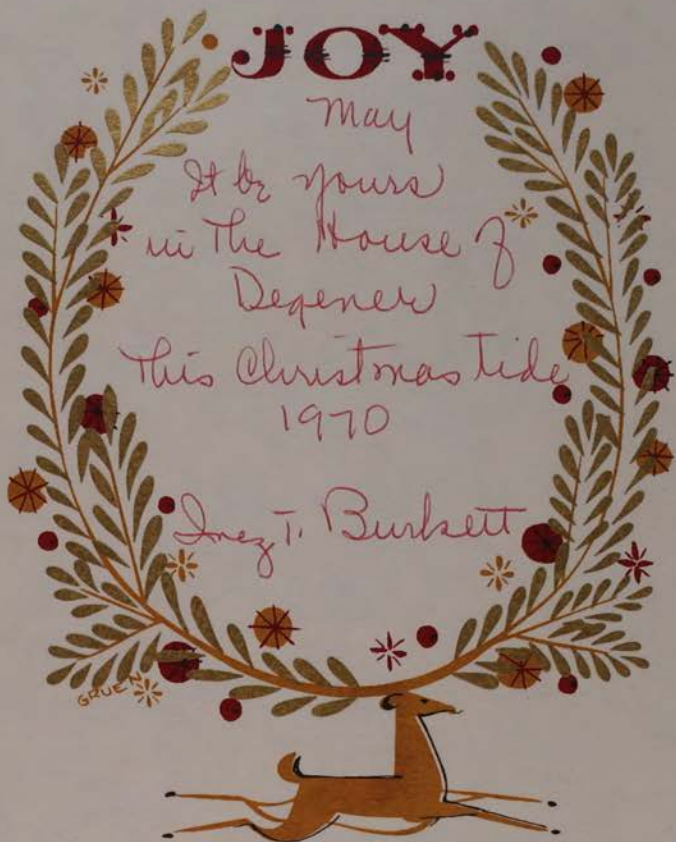 JOY
May
It be yours
in The House of
Degener
This Christmas tide
1970
Inez T. Burkett
GRUEN